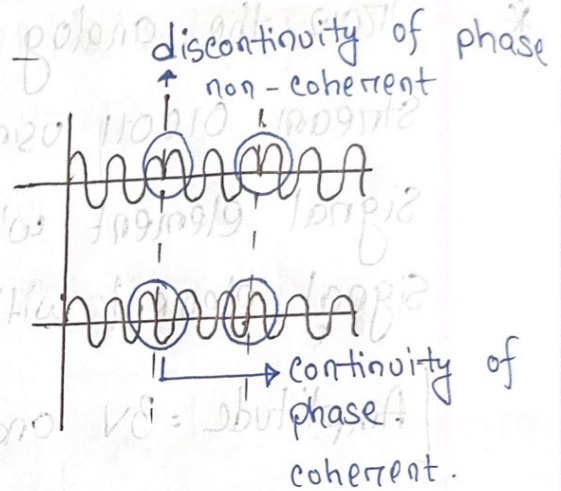 discontinuity of phase
non-coherent
continuity of
phase.
coherent.